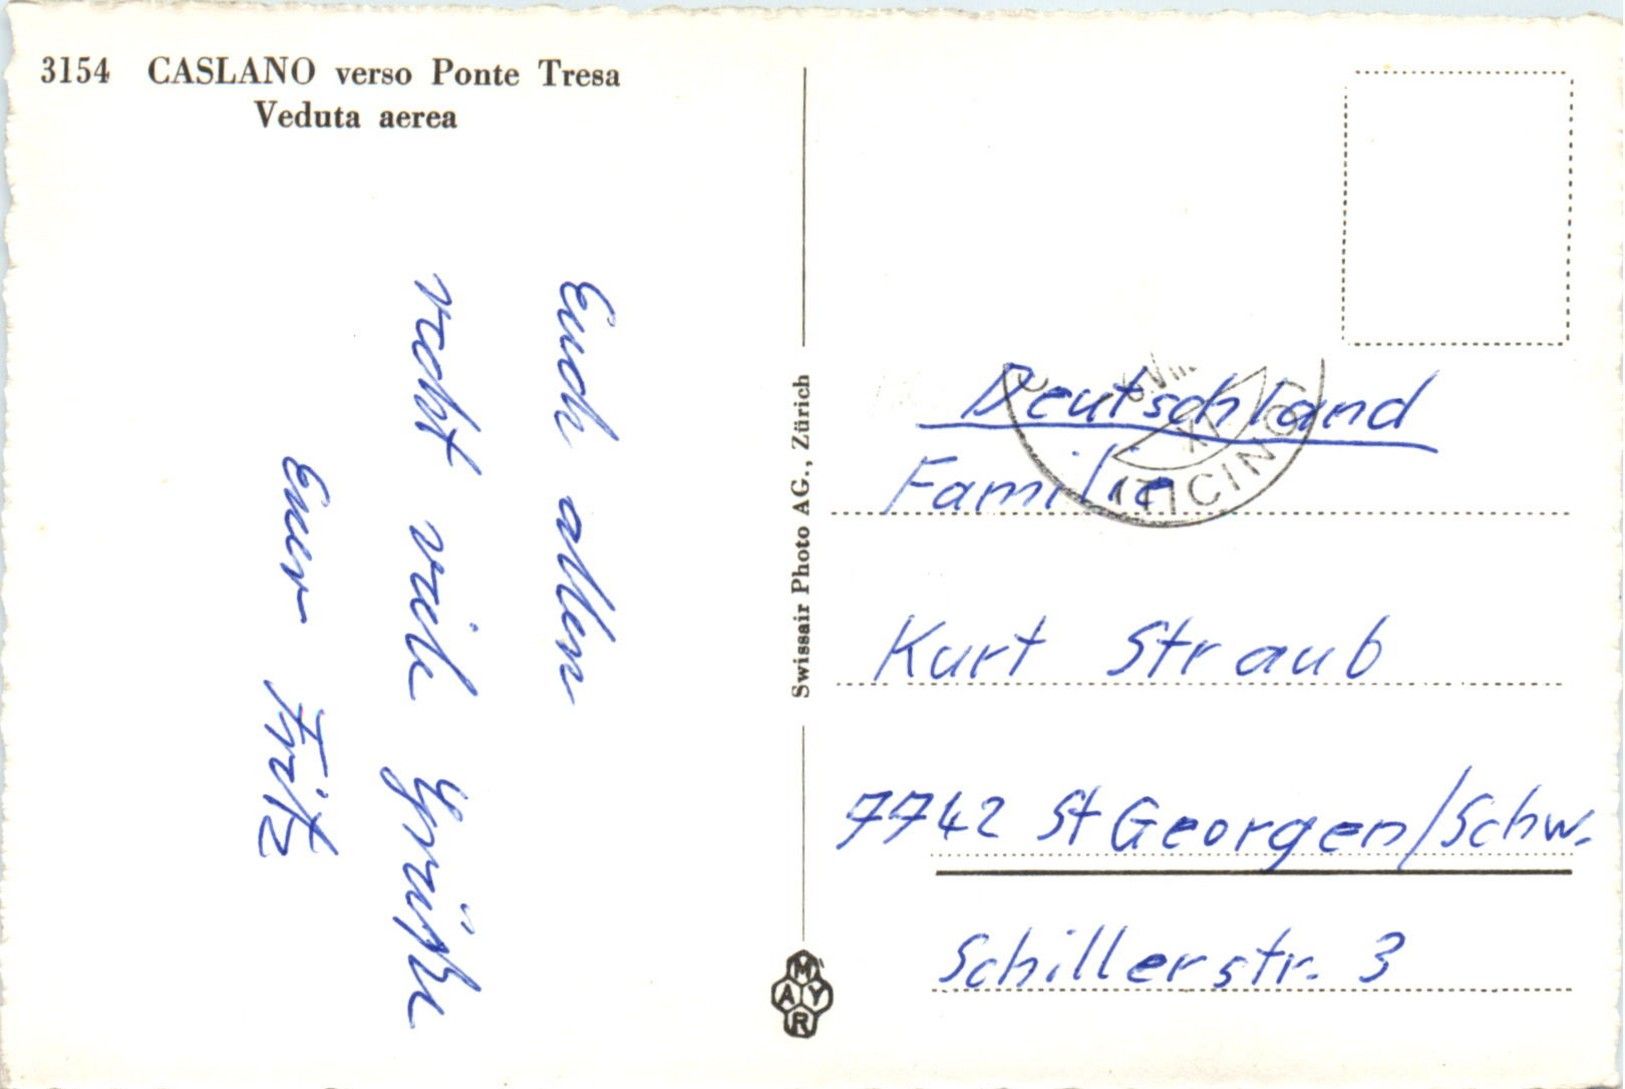 3154 CASLANO verso Ponte Tresa
Veduta aerea
Euch allen
recht viele Grüße
Euer Fritz
Swissair Photo AG., Zürich
MAYR
TICINO
Deutschland
Familie
Kurt Straub
7742 St Georgen/Schw.
Schillerstr. 3